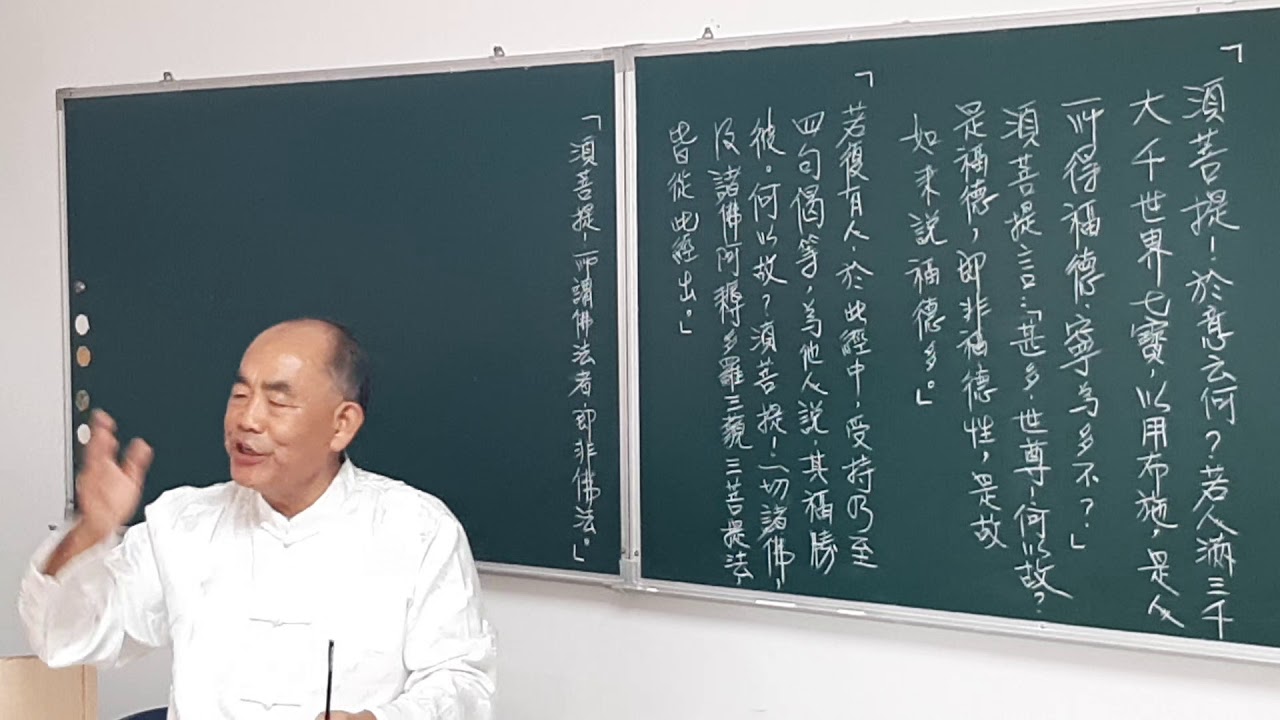 「須菩提！於意云何？若人滿三千
大千世界七寶，以用布施，是人
所得福德，寧為多不？」
須菩提言：「甚多，世尊！何以故？
是福德，即非福德性，是故
如來說福德多。」
「若復有人，於此經中，受持乃至
四句偈等，為他人說，其福勝
彼。何以故？須菩提！一切諸佛，
及諸佛阿耨多羅三藐三菩提法，
皆從此經出。」
「須菩提！所謂佛法者，即非佛法。」